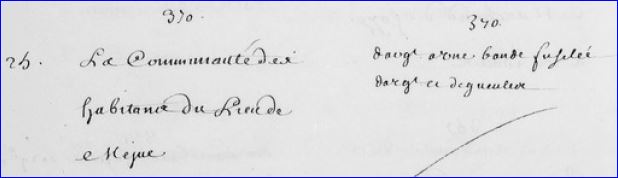 370.
25. La Communauté des
habitans du Lieu de
Mejue
370.
d'argt a une bande fuselée
d'argt et de gueules